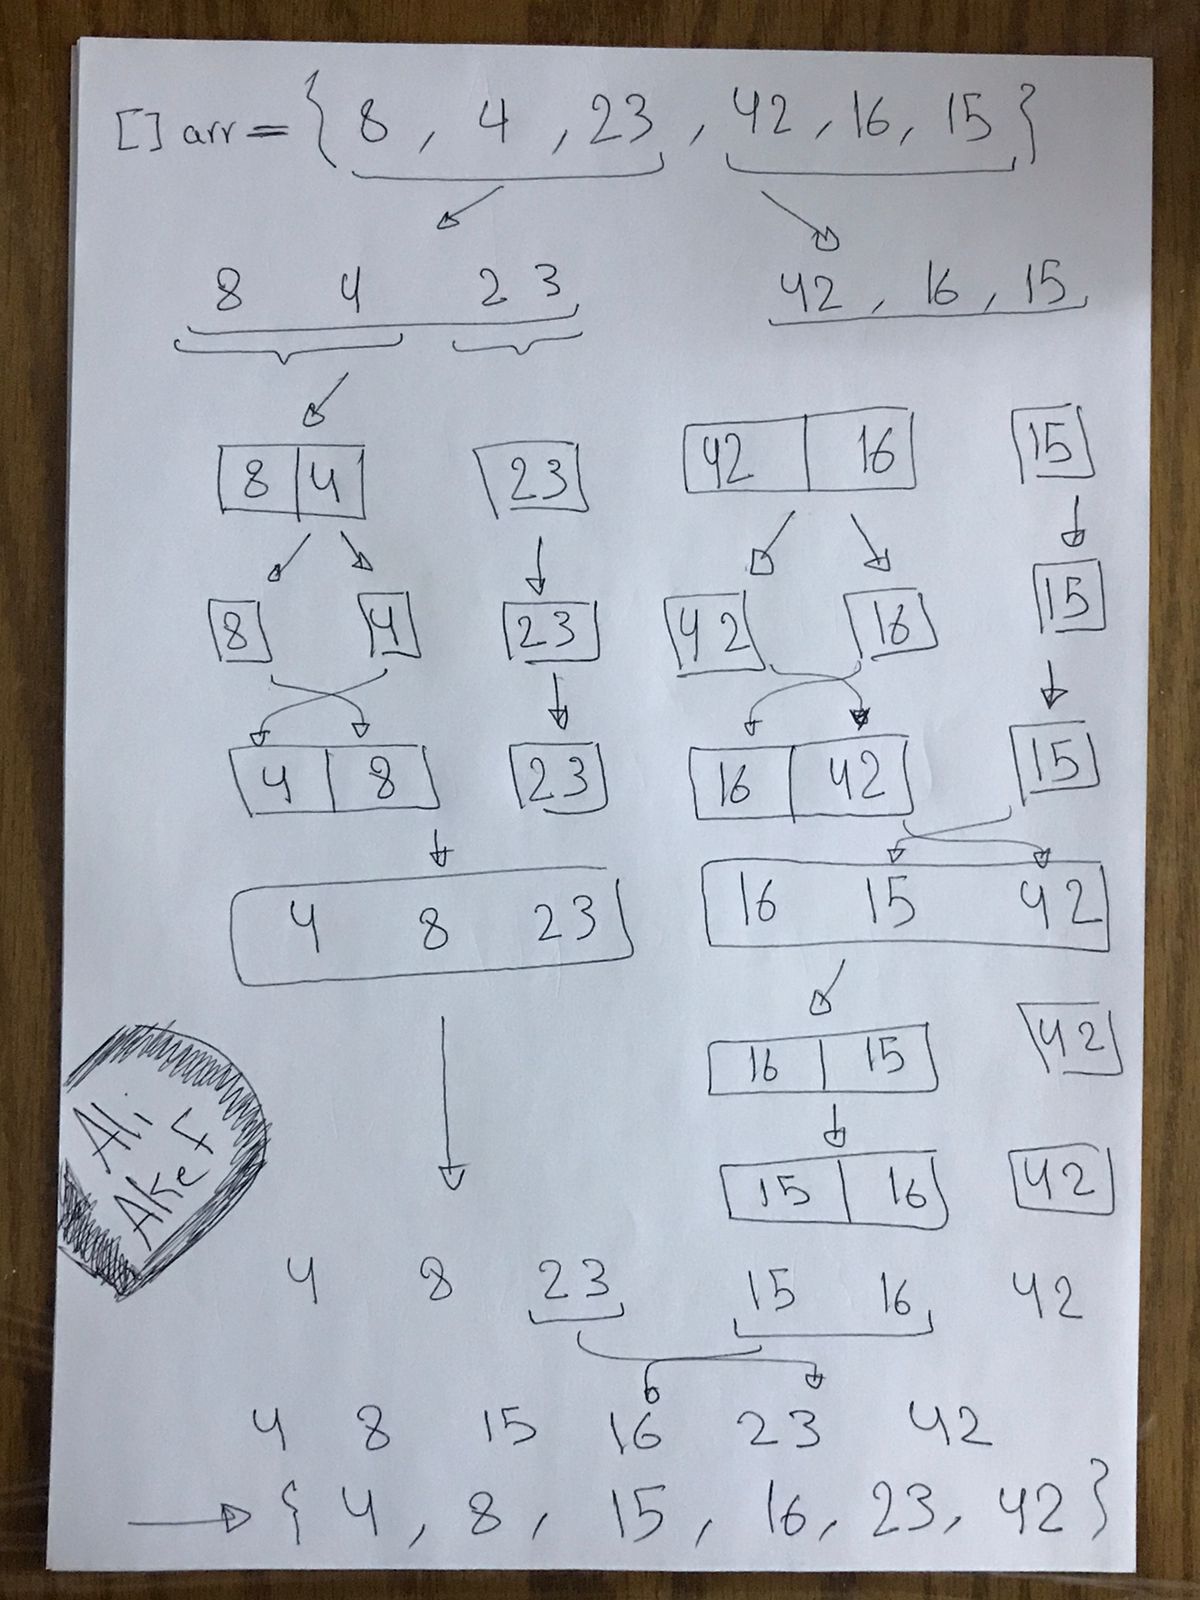 [] arr = { 8 , 4 , 23 , 42 , 16 , 15 }
8 4 23 42 , 16 , 15
8 4 23 42 16 15
8 4 23 42 16 15
4 8 23 16 42 15
4 8 23 16 15 42
16 15 42
15 16 42
Ali
Akef
4 8 23 15 16 42
4 8 15 16 23 42
{ 4 , 8 , 15 , 16 , 23 , 42 }